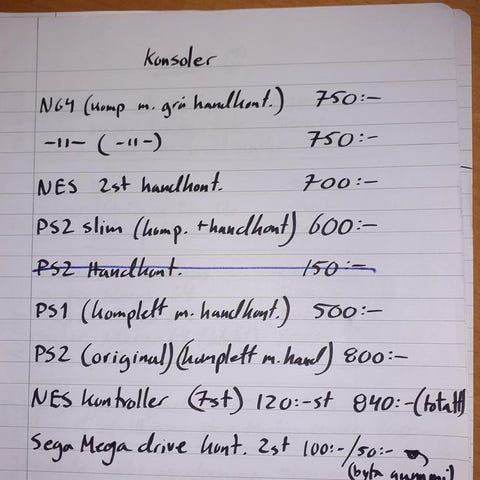 Konsoler
N64 (komp m. grå handkont.) 750:-
-11- (-11-) 750:-
NES 2st handkont. 700:-
PS2 slim (komp. + handkont) 600:-
PS2 Handkont. 150:-
PS1 (komplett m. handkont.) 500:-
PS2 (original) (komplett m. hand) 800:-
NES kontroller (7st) 120:-st 840:- (totalt)
Sega Mega drive kont. 2st 100:-/50:-
(byta gummi)